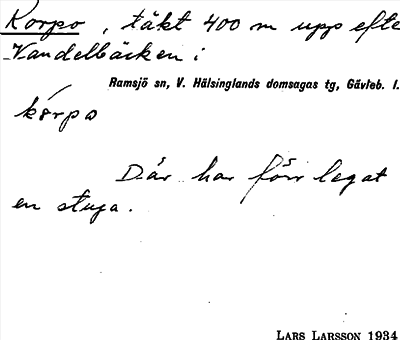 Korpo, täkt 400 m upp efte
Vandelbäcken i
Ramsjö sn, V. Hälsinglands domsagas tg, Gävleb. l.
kórpo
Där har förr legat
en stuga.
LARS LARSSON 1934